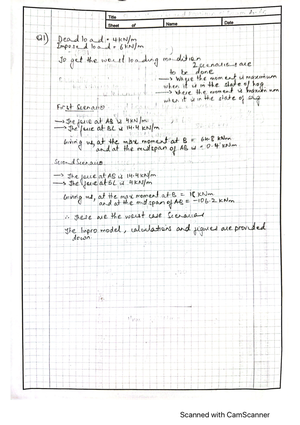 Title
Sheet of
Name
Date
Q1) Dead load = 4 kN/m
Imposed load = 6 kN/m
To get the worst loading condition
2 scenarios are
to be done
→ Where the moment is maximum
when it is in the state of hog
→ Where the moment is maximum
when it is in the state of sag
First Scenario
→ The force at AB is 4 kN/m
→ The force at BC is 14.4 kN/m
Giving us, at the max moment at B = 64.8 kNm
and at the midspan of AB is = 0.4 kNm
Second Scenario
→ The force at AB is 14.4 kN/m
→ The force at BC is 4 kN/m
Giving us, at the max moment at B = 18 kNm
and at the midspan of AB = -106.2 kNm
∴ These are the worst case scenarios
The model, calculations and figures are provided
down.
Scanned with CamScanner